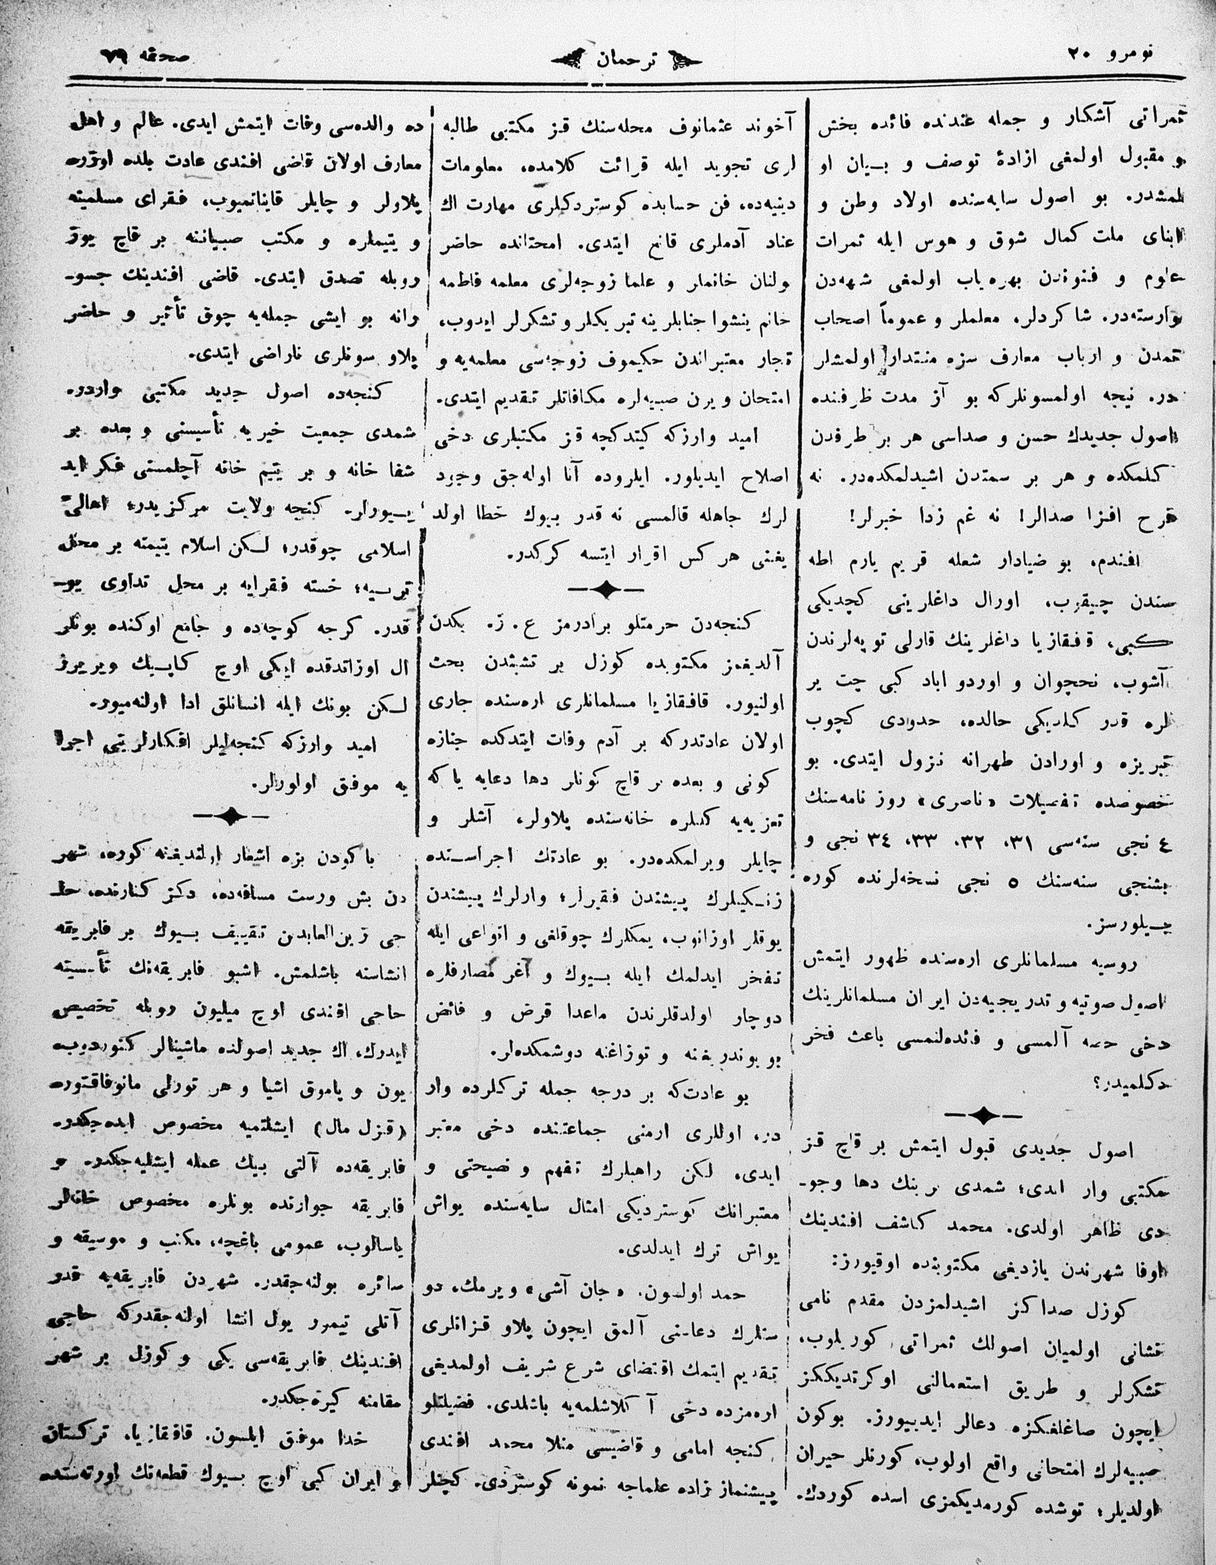 نومرو ٢٠
ترجمان
صحيفه ٧٩
ثمراتى آشكار و جمله عندنده فائده بخش
و مقبول اولمغى ازادهٔ توصف و بيان او
لمشدر. بو اصول سايه‌سنده اولاد وطن و
ابناى ملت كمال شوق و هوس ايله ثمرات
علوم و فنوندن بهره‌ياب اولمغى شبهه‌دن
وارسته‌در. شاكردلر، معلملر و عموماً اصحاب
تمدن و ارباب معارف سزه منتدار اولمشلر
در. نيجه اولمسونلركه بو آز مدت ظرفنده
اصول جديدك حسن و صداسى هر بر طرفدن
كلمكده و هر بر سمتدن اشيدلمكده‌در. نه
فرح افزا صدالر! نه غم زدا خبرلر!
افندم، بو ضيادار شعله قريم يارم اطه
سندن چيقوب، اورال داغلرينى كچديكى
كبى، قفقازيا داغلرينك قارلى توپه‌لرندن
آشوب، نخچوان و اوردو اباد كبى چت ير
لره قدر كلديكى حالده، حدودى كچوب
تبريزه و اورادن طهرانه نزول ايتدى. بو
خصوصده تفصيلات «ناصرى» روز نامه‌سنك
٤ نجى سنه‌سى ٣١، ٣٢، ٣٣، ٣٤ نجى و
بشنجى سنه‌سنك ٥ نجى نسخه‌لرنده كوره
بيلورسز.
روسيه مسلمانلرى اره‌سنده ظهور ايتمش
اصول صوتيه و تدريجيه‌دن ايران مسلمانلرينك
دخى حصه آلمسى و فائده‌لنمسى باعث فخر
دكلميدر؟
اصول جديدى قبول ايتمش بر قاچ قز
مكتبى وار ايدى؛ شمدى برينك دها وجو-
دى ظاهر اولدى. محمد كاشف افندينك
اوفا شهرندن يازديغى مكتوبنده اوقيورز:
كوزل صداكز اشيدلمزدن مقدم نامى
نشانى اولميان اصولك ثمراتى كوريلوب،
تشكرلر و طريق استعمالنى اوكرتديككز
ايچون صاغلغكزه دعالر ايدييورز. بوكون
صبيه‌لرك امتحانى واقع اولوب، كورنلر حيران
اولديلر؛ توشده كورمديكمزى اسده كوردك.
آخوند عثمانوف محله‌سنك قز مكتبى طالبه
لرى تجويد ايله قرائت كلامده، معلومات
دينيه‌ده، فن حسابده كوستردكلرى مهارت اك
عناد آدملرى قانع ايتدى. امتحانده حاضر
بولنان خانملر و علما زوجه‌لرى معلمه فاطمه
خانم ينشوا جنابلرينه تبريكلر و تشكرلر ايدوب،
تجار معتبراندن حكيموف زوجه‌سى معلمه‌يه و
امتحان ويرن صبيه‌لره مكافاتلر تقديم ايتدى.
اميد وارزكه كيتدكچه قز مكتبلرى دخى
اصلاح ايديلور. ايلروده آنا اوله‌جق وجود
لرك جاهله قالمسى نه قدر بيوك خطا اولد
يغنى هر كس اقرار ايتسه كركدر.
كنجه‌دن حرمتلو برادرمز ع. ز. بكدن
آلديغمز مكتوبده كوزل بر تشبثدن بحث
اولنيور. قافقازيا مسلمانلرى اره‌سنده جارى
اولان عادتدركه بر آدم وفات ايتدكده جنازه
كونى و بعده بر قاچ كونلر دها دعايه ياكه
تعزيه‌يه كلنلره خانه‌سنده پلاولر، آشلر و
چايلر ويرلمكده‌در. بو عادتك اجراسنده
زنكينلرك پيشندن فقيرلر؛ وارلرك پيشندن
يوقلر اوزانوب، يمكلرك چوقلغى و انواعى ايله
تفخر ايدلمك ايله بيوك و آغر مصارفلره
دوچار اولدقلرندن ماعدا قرض و فائض
بويوندريغنه و توزاغنه دوشمكده‌لر.
بو عادت‌كه بر درجه جمله تركلرده وار
در، اوللرى ارمنى جماعتنده دخى معتبر
ايدى. لكن راهبلرك تفهم و نصيحتى و
معتبرانك كوسترديكى امثال سايه‌سنده يواش
يواش ترك ايدلدى.
حمد اولسون، «جان آشى» ويرمك، دو
ستلرك دعاسنى آلمق ايچون پلاو قزانلرى
تقديم ايتمك اقتضاى شرع شريف اولمديغى
اره‌مزده دخى آكلاشلمه‌يه باشلدى. فضيلتلو
كنجه امامى و قاضيسى منلا محمد افندى
پيشنماز زاده علماجه نمونه كوستردى. كچنلر
ده والده‌سى وفات ايتمش ايدى. عالم و اهل
معارف اولان قاضى افندى عادت بلده اوزره
پلاولر و چايلر قايناتميوب، فقراى مسلمينه
و يتيملره و مكتب صبياننه بر قاچ يوز
روبله تصدق ايتدى. قاضى افندينك جسو-
رانه بو ايشى جمله‌يه چوق تأثير و حاضر
پلاو سونلرى ناراضى ايتدى.
كنجه‌ده اصول جديد مكتبى واردر.
شمدى جمعيت خيريه تأسيسنى و بعده بر
شفا خانه و بر يتيم خانه آچلمسنى فكر ايد
ييورلر. كنجه ولايت مركزيدر؛ اهالىٔ
اسلامى چوقدر؛ لكن اسلام يتيمنه بر محل
تربيه؛ خسته فقرايه بر محل تداوى يو-
قدر. كرچه كوچه‌ده و جامع اوكنده بونلر
ال اوزاتدقده ايكى اوچ كاپيك ويريرز
لكن بونك ايله انسانلق ادا اولنه‌ميور.
اميد وارزكه كنجه‌ليلر افكارلرينى اجرا
يه موفق اولورلر.
باكودن بزه اشعار ايتلديغنه كوره، شهر
دن بش ورست مسافه‌ده، دكز كنارنده، حا-
جى زين‌العابدين تقييف بيوك بر فابريقه
انشاسنه باشلمش. اشبو فابريقه‌نك تأسيسنه
حاجى افندى اوچ ميليون روبله تخصيص
ايدرك، اك جديد اصولده ماشينالر كتوردوب،
يون و پاموق اشيا و هر تورلى مانوفاقتوره
(قزل مال) ايشلتميه مخصوص ايده‌جكدر.
فابريقه‌ده آلتى بيك عمله ايشليه‌جكدر. و
فابريقه جوارنده بونلره مخصوص خانه‌لر
ياسالوب، عمومى باغچه، مكتب و موسيقه و
سائره بولنه‌جقدر. شهردن فابريقه‌يه قدر
آتلى تيمور يول انشا اولنه‌جقدركه حاجى
افندينك فابريقه‌سى يكى و كوزل بر شهر
مقامنه كيره‌جكدر.
خدا موفق ايلسون. قافقازيا، تركستان
و ايران كبى اوچ بيوك قطعه‌نك اورته‌سنده